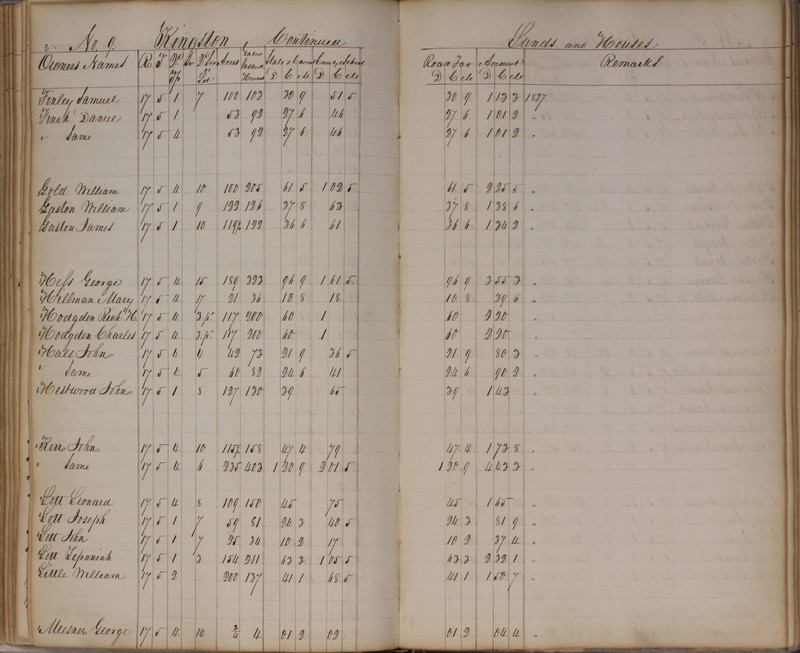 2 No 9 Kingston Continued Lands and Houses
Owners Names R T Acres Value Lands & Houses State & Canal County & School Road Tax Amount Remarks
D C cts D C cts D C cts D C cts
Finley Samuel 17 5 1 7 100 103 30 9 51 5 30 9 1 13 3 1837
Daniel 17 5 1 53 92 27 6 46 27 6 1 01 2 "
" Same 17 5 4 53 92 27 6 46 27 6 1 01 2 "
Gold William 17 5 4 10 100 205 61 5 1 02 5 61 5 2 25 5 "
Gaston William 17 5 1 9 122 126 37 8 63 37 8 1 38 6 "
Gaston James 17 5 1 10 119½ 122 36 6 61 36 6 1 34 2 "
Hess George 17 5 4 15 189 323 96 9 1 61 5 96 9 3 55 3 "
Hillman Mary 17 5 4 17 21 36 10 8 18 10 8 39 6 "
Hodgden 17 5 4 3 pt 117 200 60 1 60 2 20 "
Hodgden Charles 17 5 4 3 pt 117 200 60 1 60 2 20 "
Hall John 17 5 4 42 73 21 9 36 5 21 9 80 3 "
" Same 17 5 4 5 60 82 24 6 41 24 6 90 2 "
Hestwood John 17 5 1 8 127 130 39 65 39 1 43
Kerr John 17 5 4 10 115½ 158 47 4 79 47 4 1 73 8 "
" Same 17 5 4 6 235 403 1 20 9 2 01 5 1 20 9 4 43 3 "
Lott Leonard 17 5 4 8 109 150 45 75 45 1 65 "
Lott Joseph 17 5 1 7 59 81 24 3 40 5 24 3 81 9 "
Lott John 17 5 1 7 25 34 10 2 17 10 2 37 4 "
Lott Zepaniah 17 5 1 3 154 211 63 3 1 05 5 63 3 2 32 1 "
Little William 17 5 2 200 137 41 1 68 5 41 1 1 50 7 "
Meesner George 17 5 4 14 ¾ 4 01 2 02 01 2 04 4 "